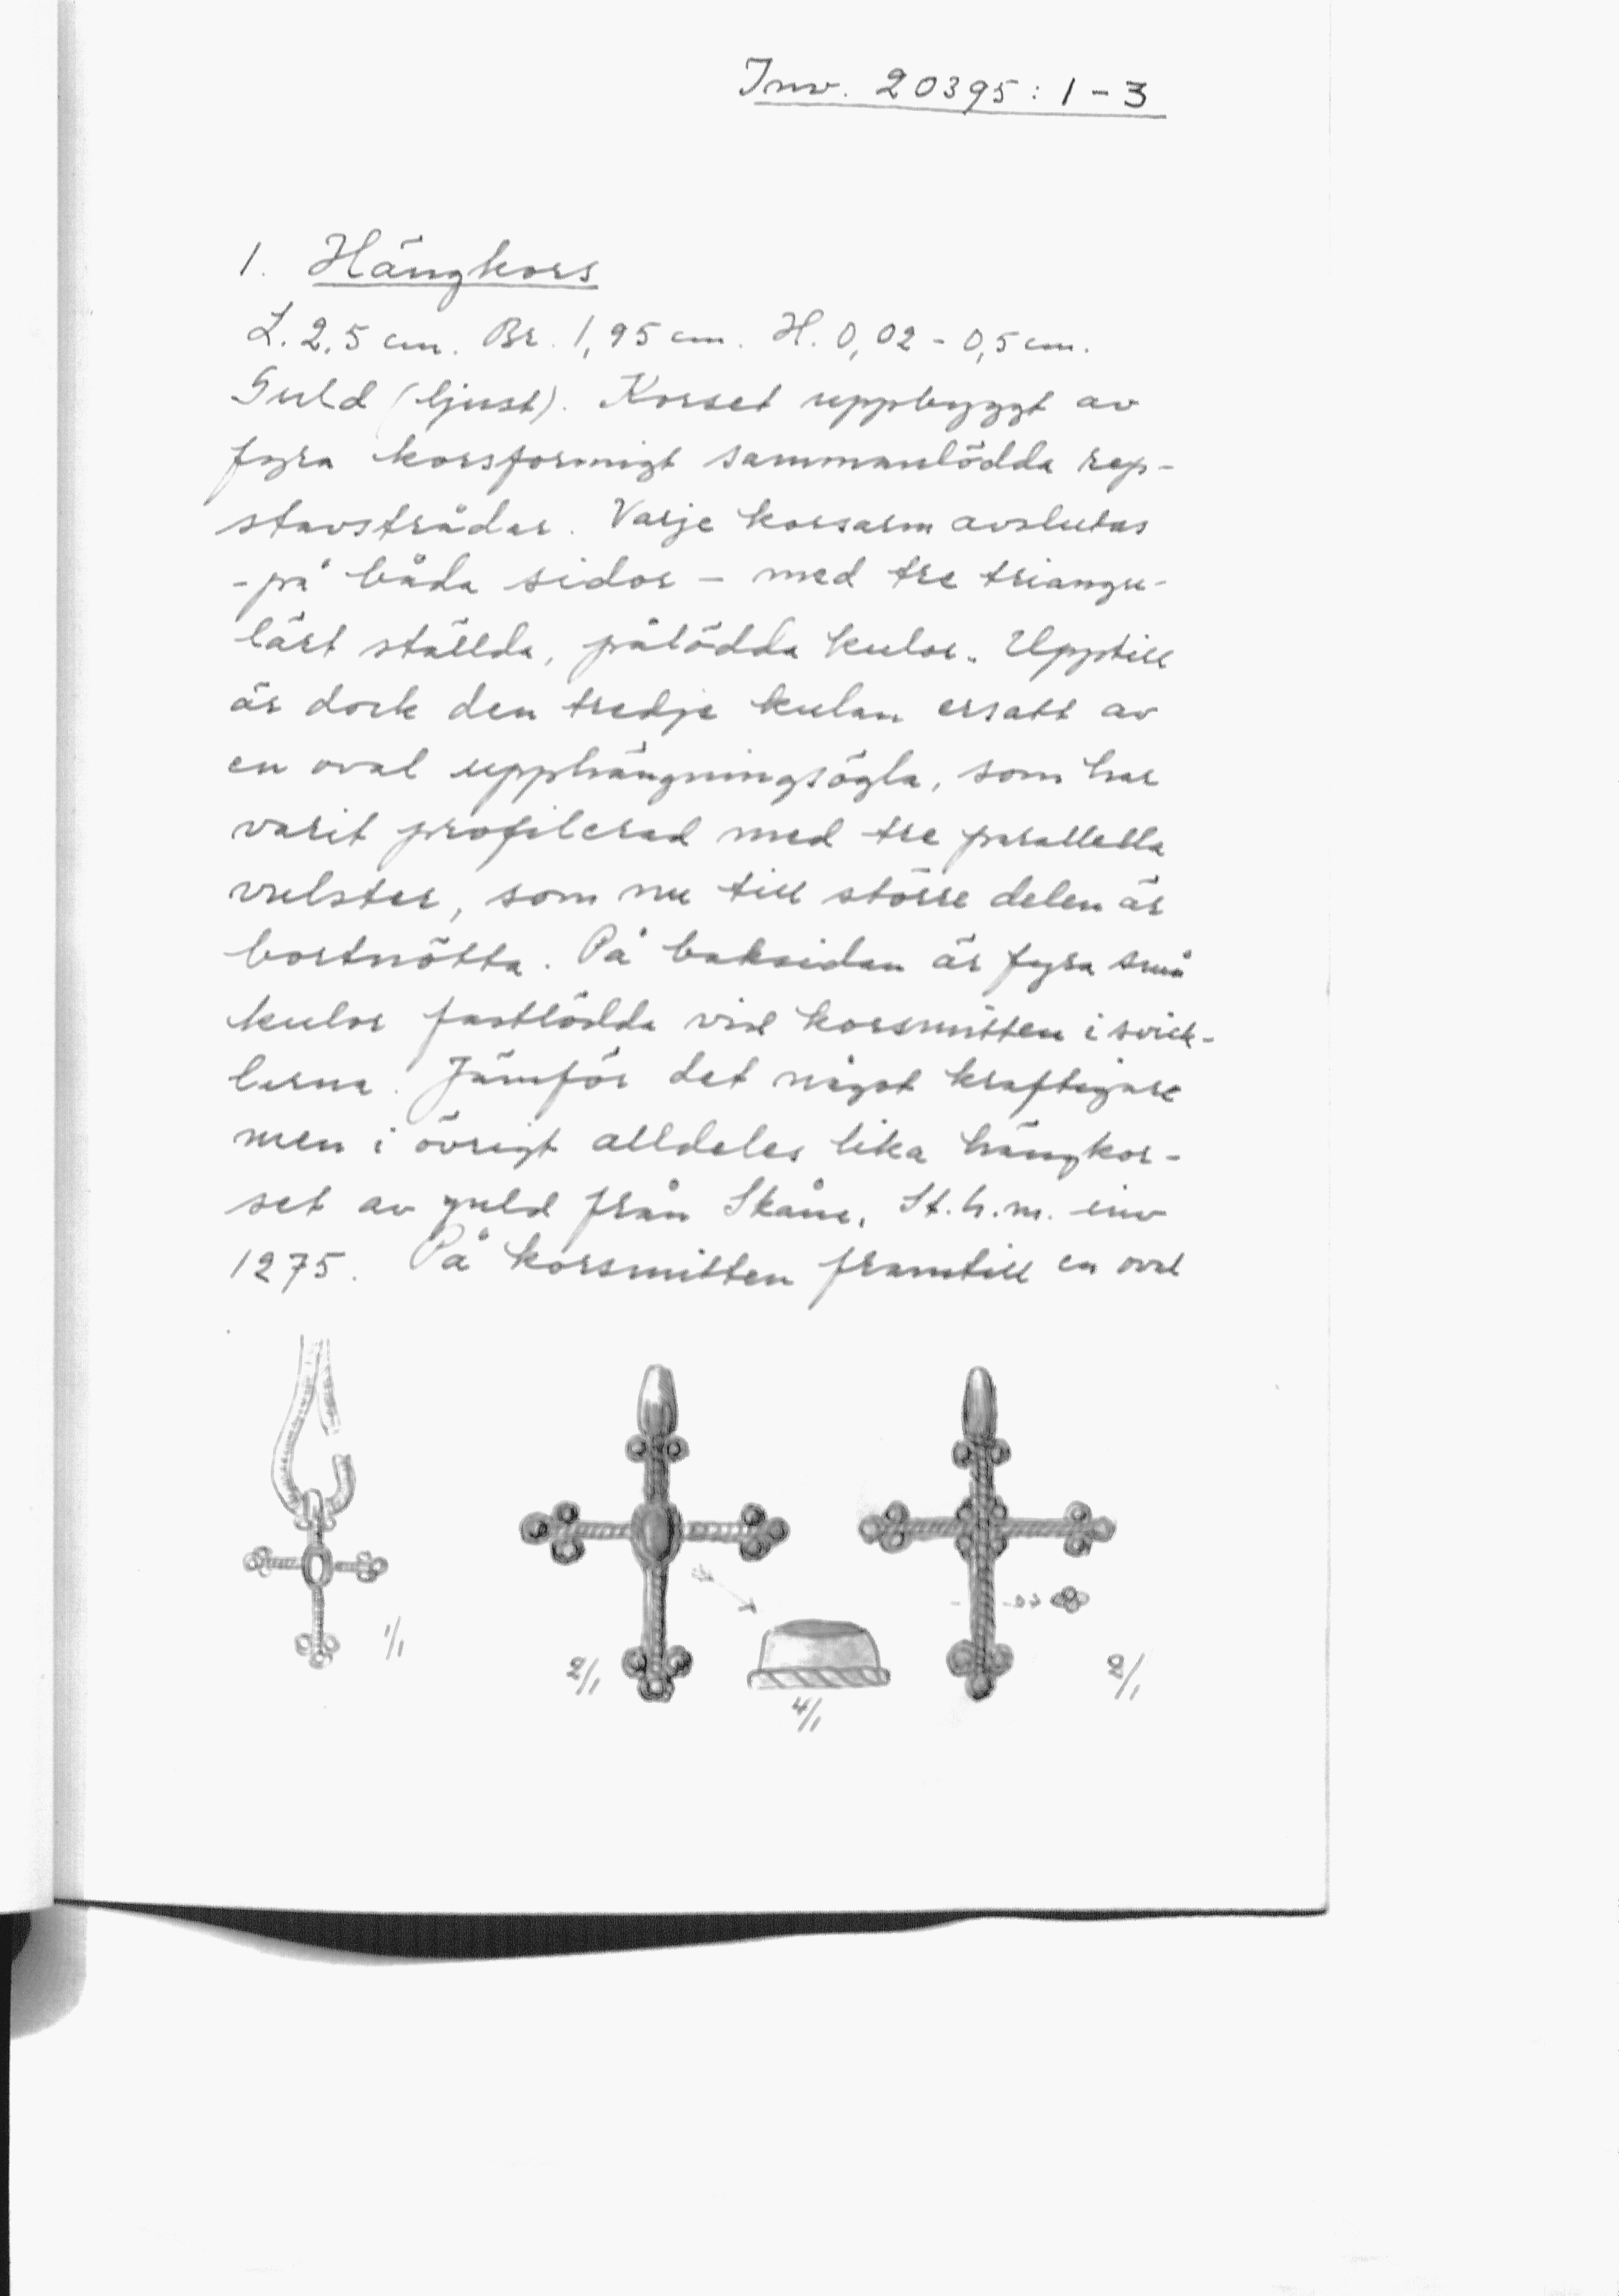 Inv. 20395: 1-3
1. Hängkors
L. 2,5 cm. Br. 1,95 cm. H. 0,02 - 0,5 cm.
Guld (ljust). Korset uppbyggt av
fyra korsformigt sammanlödda rep-
stavstrådar. Varje korsarm avslutas
- på båda sidor - med tre triangu-
lärt ställda, pålödda kulor. Upptill
är dock den tredje kulan ersatt av
en oval upphängningsögla, som har
varit profilerad med tre parallella
vulster, som nu till större delen är
bortnötta. På baksidan är fyra små
kulor fastlödda vid korsmitten i svick-
larna. Jämför det något kraftigare
men i övrigt alldeles lika hängkor-
set av guld från Skåne, St.h.m. inv
1275. På korsmitten framtill en oval
1/1
2/1
4/1
2/1